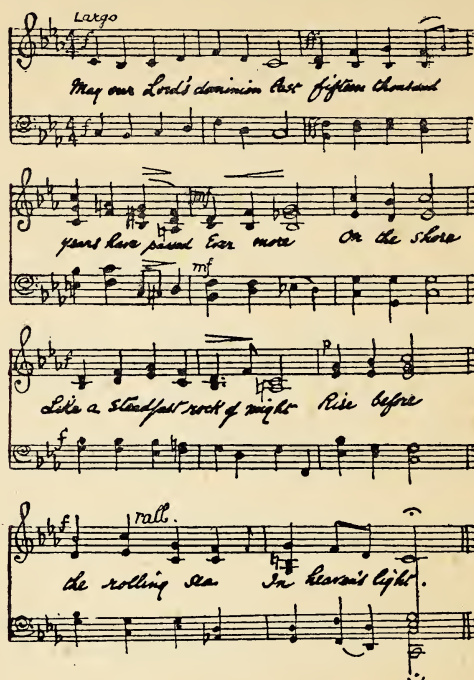 Largo
f ff
May our Lord's dominion Last fifteen thousand
f ff
mf
years have passed Ever more On the shore
mf
f p
Like a steadfast rock of might Rise before
f
f rall.
the rolling sea In heaven's light.